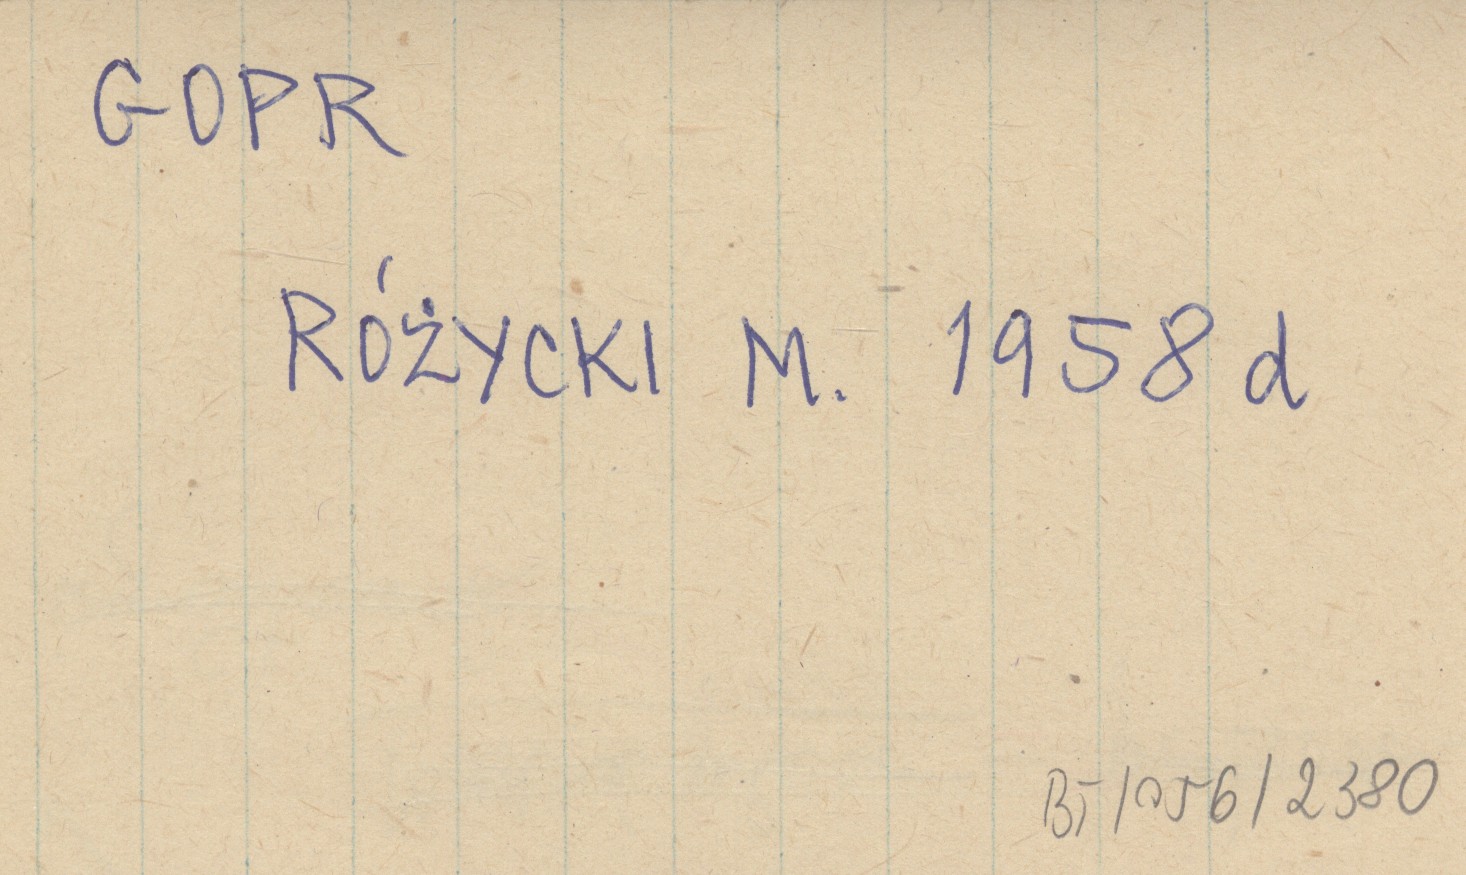 GOPR
RÓŻYCKI M. 1958 d
BJ/056/2380